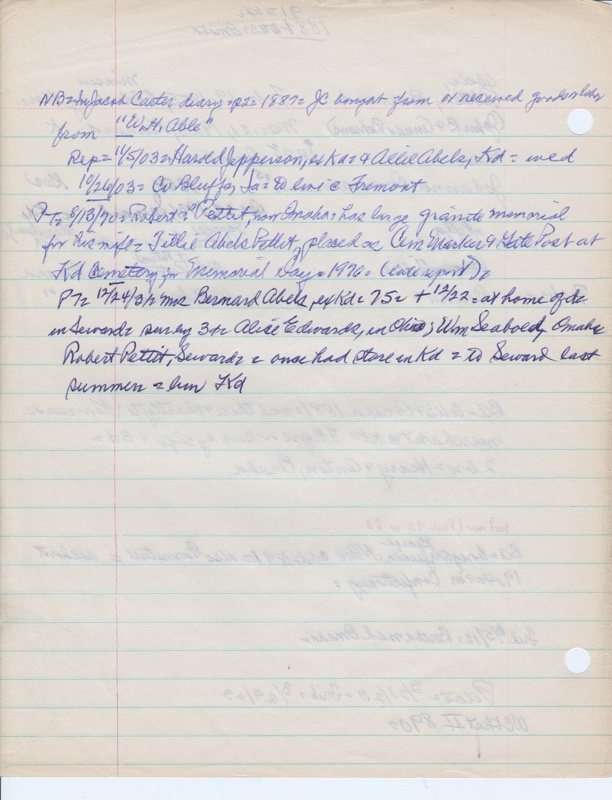 NB = In Jacob Carter diary = pt = 1887 = JC bought from or received goods &
from "W.H. Able"
Rep = 11/5/03 = Harold Jepperson, ex Kd = & Allie Abels, Kd = wed
10/26/03 = Co Bluffs, Ia = to live Fremont
PT = 8/13/70 = Robert = Pettit, now Omaha = has large granite memorial
for his wife = Tillie Abels Pettit, placed as Cem Marker & Gate Post at
Kd Cemetery for Memorial Day = 1970 = (late report) =
PT = 12/24/31 = Mrs Bernard Abels, ex Kd = 75 = + 12/22 = at home of
in Seward = surv by 3 = Alice Edwards, in Ohio; Wm Seabold, Omaha
Robert Pettit, Seward = once had store in Kd = to Seward last
summer = bur Kd